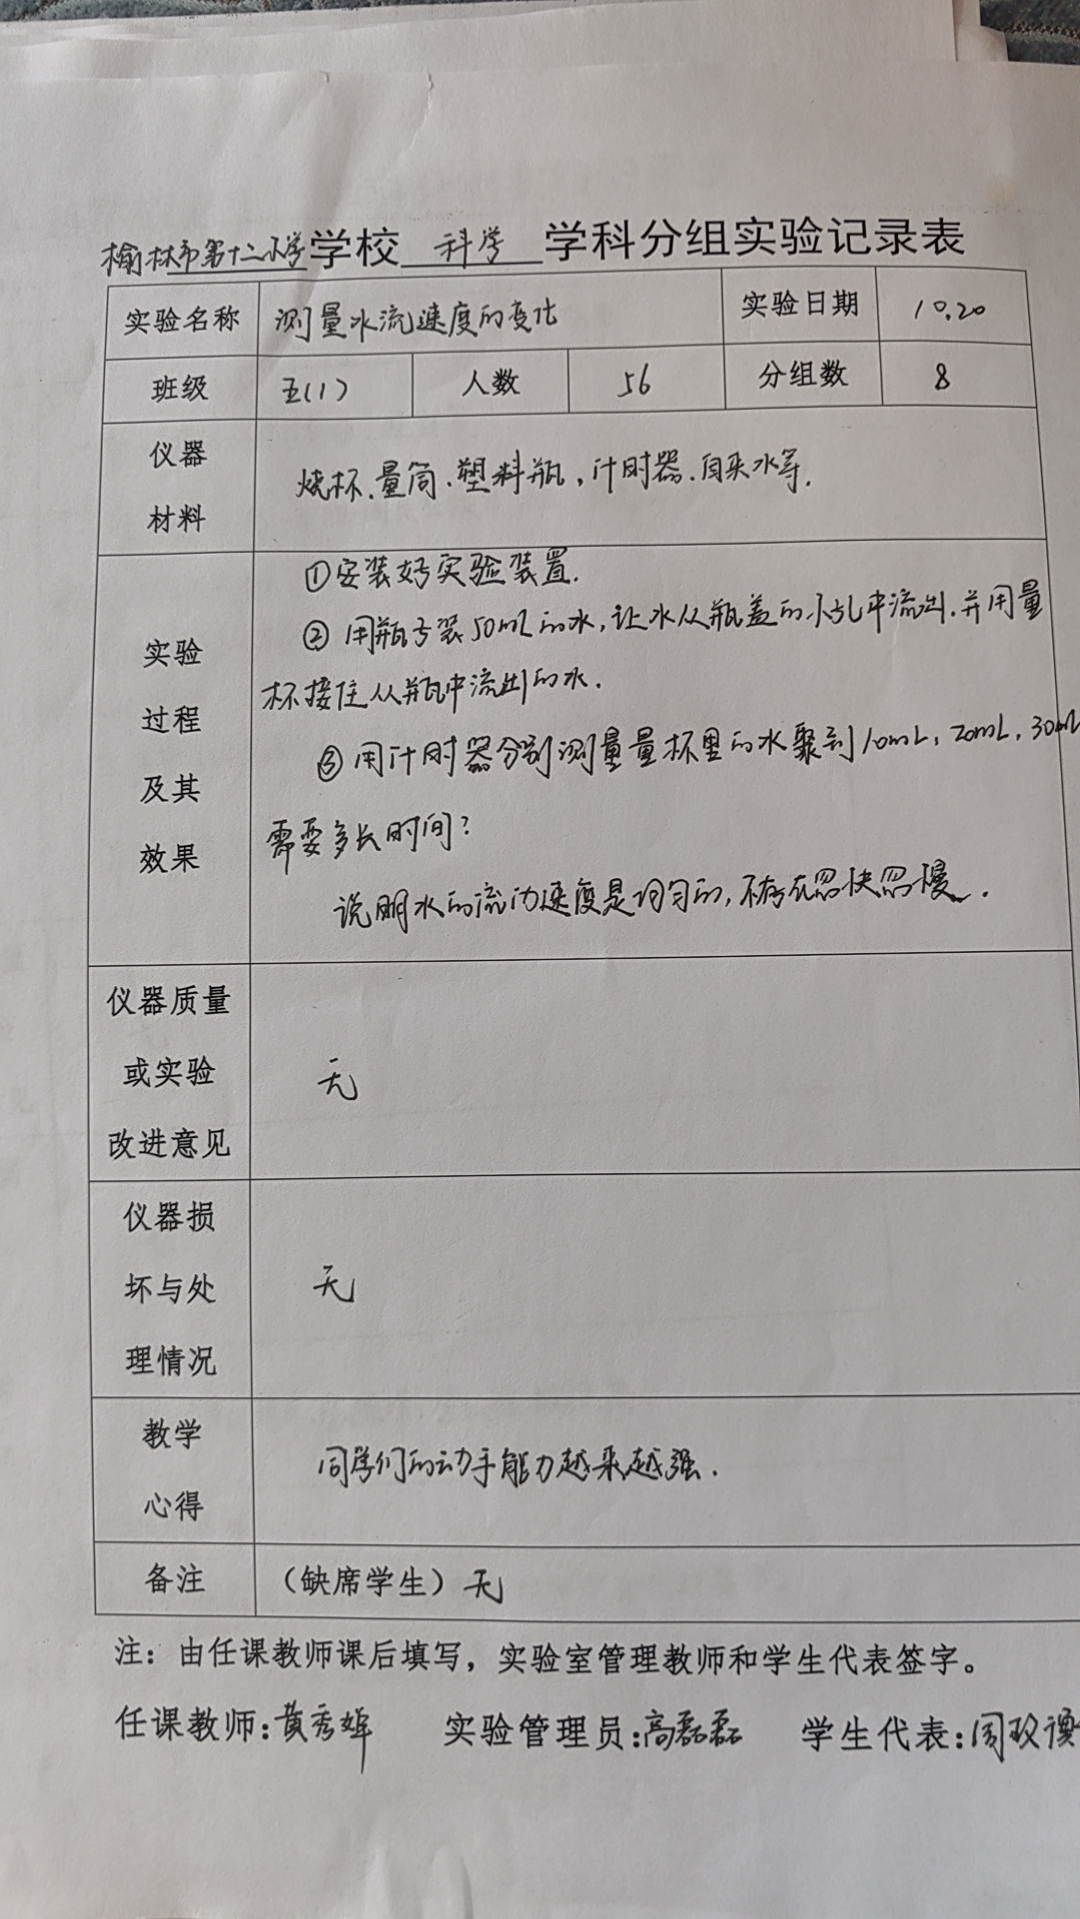 榆林市第十二小学学校 科学 学科分组实验记录表
实验名称 测量水流速度的变化 实验日期 10.20
班级 五(1) 人数 56 分组数 8
仪器
材料
烧杯、量筒、塑料瓶,计时器、自来水等.
实验
过程
及其
效果
①安装好实验装置.
② 用瓶子装50mL的水,让水从瓶盖的小孔中流出.并用量
杯接住从瓶中流出的水.
③ 用计时器分别测量量杯里的水聚到10mL,20mL,30mL
需要多长时间?
说明水的流动速度是均匀的,不存在忽快忽慢.
仪器质量
或实验
改进意见
无
仪器损
坏与处
理情况
无
教学
心得
同学们的动手能力越来越强.
备注 (缺席学生)无
注:由任课教师课后填写,实验室管理教师和学生代表签字。
任课教师:黄秀婷 实验管理员:高磊磊 学生代表:周玟